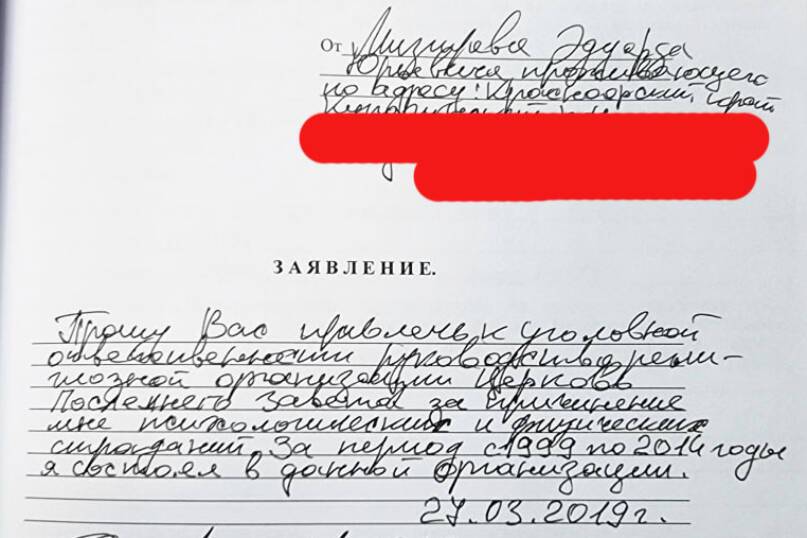 От Мизирева Эдуарда
Юрьевича проживающего
по адресу: Красноярский край
ЗАЯВЛЕНИЕ.
Прошу Вас привлечь к уголовной
ответственности руководство рели-
гиозной организации Церковь
Последнего Завета за причинение
мне психологических и физических
страданий. За период с 1999 по 2014 годы
я состоял в данной организации.
27.03.2019г.